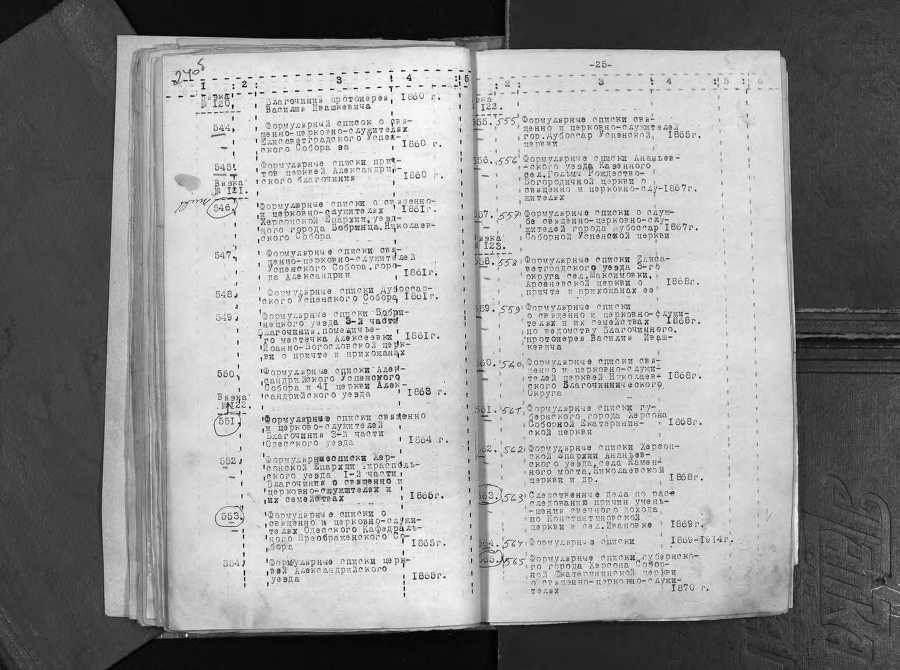 240б
I : 2: 3 4 5
№ 120. благочиния протоиерея I860 г.
Василия Ивашкевича
544. Формулярный список о свя-
щенно-церковно-служителях
Елисаветградского Успен-
ского Собора за I860 г.
545. Формулярные списки при-
тов церквей Александрий-
ского благочиния I860 г.
Вязка
№ I2I.
546. Формулярные списки о священно-
и церковно-служителях I86Iг.
Херсонской Епархии, уезд-
ного города Бобринца, Николаев-
ского Собора
547. Формулярные списки свя-
щенно-церковно-служителей
Успенского Собора, горо-
да Александрии I86Iг.
548. Формулярные списки Дубоссар-
ского Успенского Собора I86Iг.
549. Формулярные списки Бобри-
нецкого уезда 3-й части
благочиния, помещичье-
го местечка Алексеевки I86Iг.
Иоанно-Богословской церк-
ви о причте и прихожанах
550. Формулярные списки Алек-
сандрийского Успенского
Собора и 4I церкви Алек-
сандрийского уезда I863 г.
Вязка
№ I22.
551. Формулярные списки священно
и церковно-служителей
Благочиния 3-й части
Одесского уезда I864 г.
552. Формулярныесписки Хер-
сонской Епархии Тирасполь-
ского уезда I-й части
Благочиния о священно и
церковно-служителях и
их семействах I865г.
553. Формулярные списки о
священно и церковно-служи-
телях Одесского Кафедраль-
ного Преображенского Со-
бора I865г.
554. Формулярные списки церк-
вей Александрийского
уезда I865г.
-25-
2: 3 4 :5 : 6
I22.
555. 555 Формулярные списки свя-
щенно и церковно-служителей
гор.Дубоссар Успенской, I865г.
церкви
556. 556 Формулярные списки Ананьев-
-ского уезда Казенного
сел.Гольмы Рождество-
Богородичной церкви о
священно и церковно-слу-I867г.
жителях
557. 557 Формулярные списки о служ-
бе священно-церковно-слу-
жителей города Дубоссар I867г.
Соборной Успенской церкви
I23.
558. 558 Формулярные списки Елиса-
ветградского уезда 3-го
округа сел.Максимовки,
Арсеневской церкви о I868г.
причте и прихожанах ее
559. 559 Формулярные списки
о священно и церковно-служи-
телях и их семействах I868г.
по ведомству Благочинного,
протоиерея Василия Иваш-
кевича
560. 560 Формулярные списки свя-
щенно и церковно-служи-
телей церквей Николаев-
ского Благочиннического I868г.
Округа
561. 561 Формулярные списки гу-
бернского, города Херсона
Соборной Екатеринин- I868г.
ской церкви
562. 562 Формулярные списки Херсон-
ской Епархии Ананьев-
ского уезда,села Камен-
ного моста,Николаевской
церкви и др. I868г.
563. 563 Следственные дела по рас-
следованию причин умень-
-шения свечного дохода,
по Константиновской
церкви в сел.Ивановке I869г.
564. 564 Формулярные списки I869-I914г.
565. 565 Формулярные списки,губернско-
го города Херсона Собор-
ной Екатерининской церкви
о священно-церковно-служи-
телях I870 г.